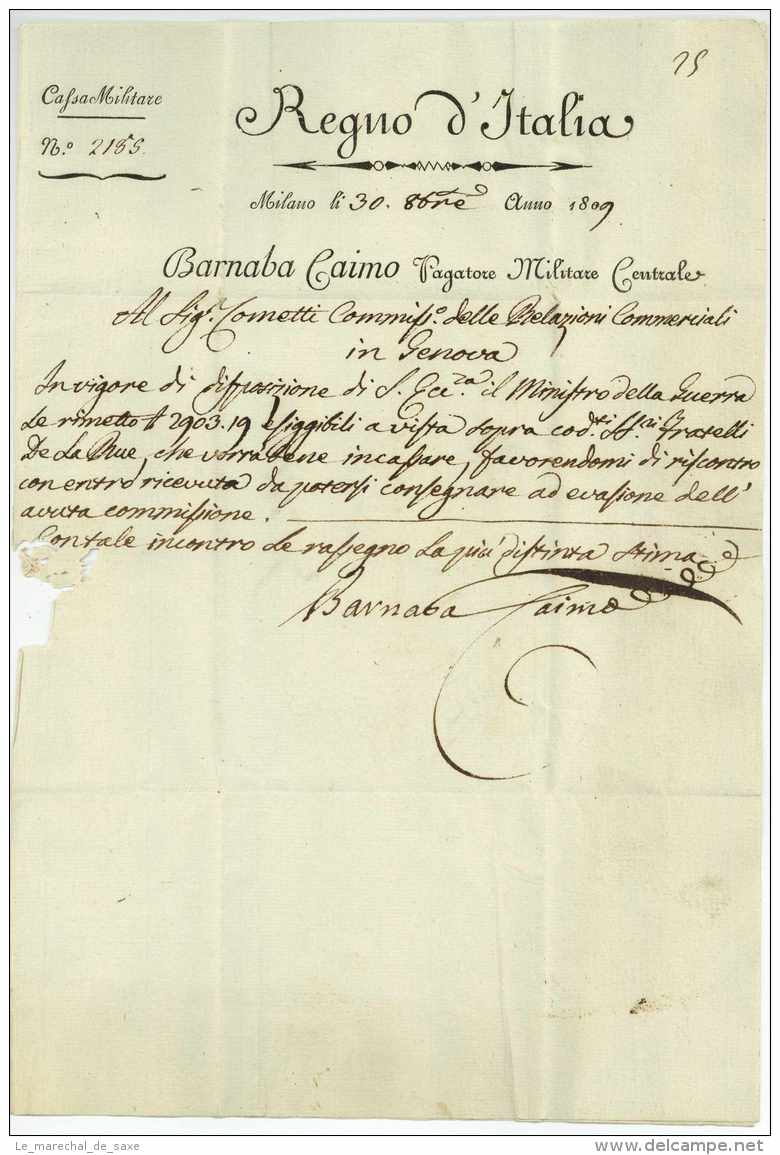 25
Cassa Militare
N.º 2185.
Regno d'Italia
Milano li 30. 8bre Anno 1809
Barnaba Caimo Pagatore Militare Centrale
Al Sig.r Cometti Commiss.º delle Relazioni Commerciali
in Genova
In vigore di disposizione di S. Ecc.za il Ministro della Guerra
Le rimetto £ 2903.19 esiggibili a vista sopra cod.ti SS.ri Fratelli
De La Rue, che vorrà bene incassare, favorendomi di riscontro
con entro ricevuta da potersi consegnare ad evasione dell'
avuta commissione.
Con tale incontro Le rassegno la più distinta stima
Barnaba Caimo
Le_marechal_de_saxe
www.delcampe.net